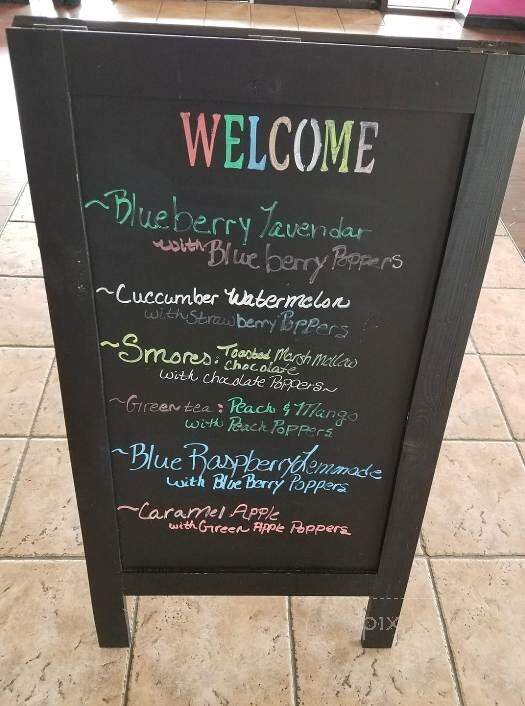 WELCOME
~Blueberry Lavendar
with Blueberry Poppers
~Cuccumber Watermelon
with Strawberry Poppers
~Smores: Toasted Marshmallow
Chocolate
with chocolate Poppers~
~Green tea: Peach & Mango
with Peach Poppers
~Blue Raspberry Lemmade
with Blue Berry Poppers
~Caramel Apple
with Green Apple Poppers